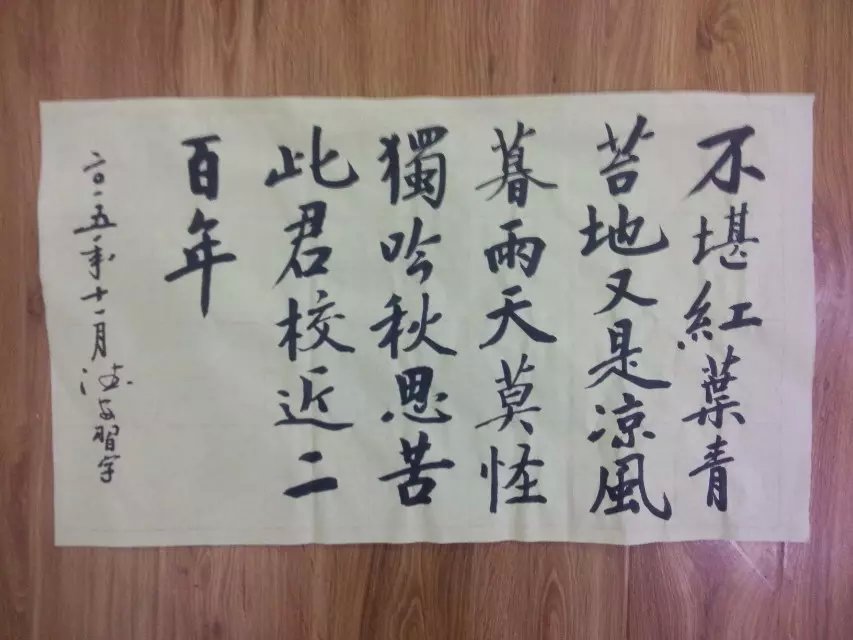 不堪紅葉青
苔地又是凉風
暮雨天莫怪
獨吟秋思苦
此君校近二
百年
二〇一五年十一月 習字